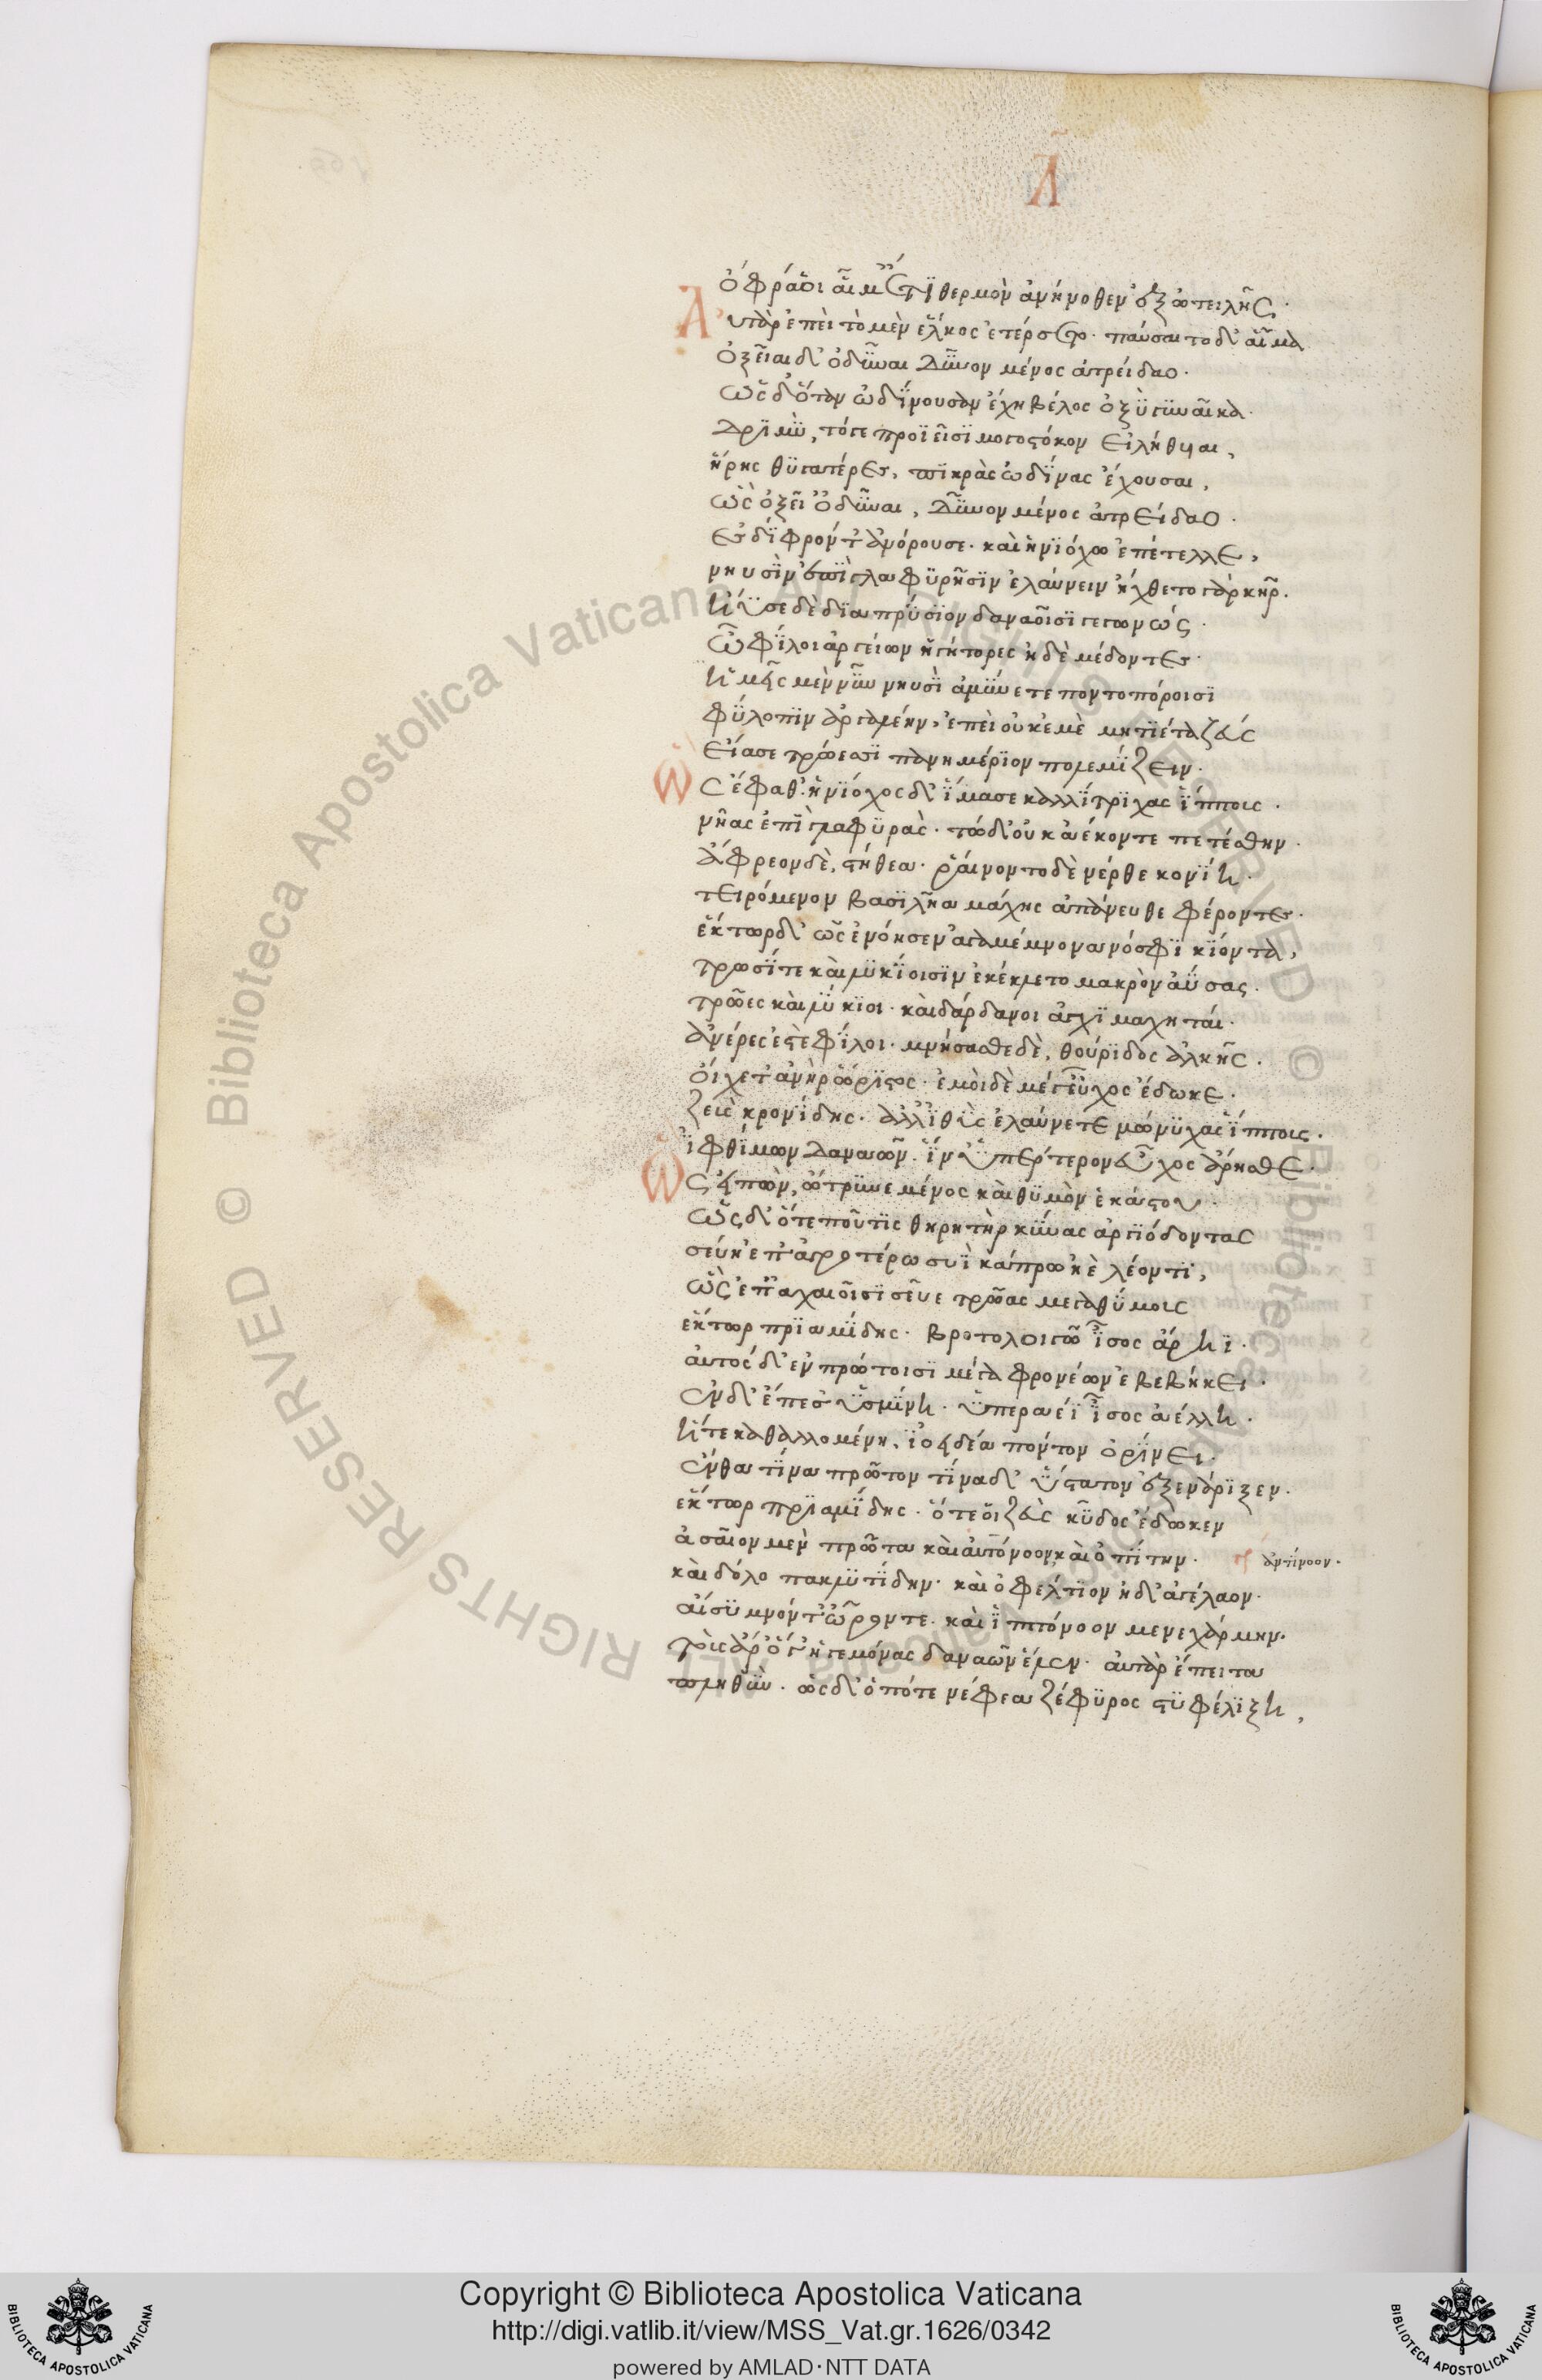 Λ
ὄφρά οἱ αἷμ' ἔτϊ θερμὸν ἀνήνοθεν ἐξ ὠτειλῆς·
Αὐτὰρ ἐπεὶ τὸ μὲν ἕλκος ἐτέρσετο· παύσατο δ' αἷμα
ὀξεῖαι δ' ὀδύναι δῦνον μένος ἀτρείδαο·
ὡς δ' ὅταν ὠδΐνουσαν ἔχη βέλος ὀξὺ γϋναῖκα·
δρϊμὺ, τό τε προϊεῖσϊ μογοστόκον εἰλήθυιαι,
ἥρης θϋγατέρες, πϊκρὰς ὠδῖνας ἔχουσαι,
ὣς ὀξεῖ' ὀδύναι, δῦνον μένος ἀτρείδαο·
ἐς δΐφρον τ' ἀνόρουσε· καὶ ἡνϊόχω ἐπέτελλε,
νηυσὶν ἐπὶ γλαφϋρῆσϊν ἐλαύνειν ἤχθετο γὰρ κῆρ·
ἤϋσε δὲ δϊαπρύσϊον δαναοῖσϊ γεγωνώς·
ὦ φΐλοι ἀργείων ἡγήτορες ἠδὲ μέδοντες·
ἡμεῖς μὲν νῦν νηυσὶ ἀμύνετε ποντοπόροισϊ
φύλοπϊν ἀργαλέην, ἐπεὶ οὐκ ἐμὲ μητϊέτα ζεύς
εἴασε τρώεσσϊ πανημέρϊον πολεμΐζειν·
Ὣς ἔφαθ'· ἡνϊόχος δ' ἵμασε καλλΐτρϊχας ἵππους·
νῆας ἐπὶ γλαφϋράς· τὼ δ' οὐκ ἀέκοντε πετέσθην·
ἄφρεον δὲ, στήθεα· ῥαίνοντο δὲ νέρθε κονΐη·
τειρόμενον βασϊλῆα μάχης ἀπάνευθε φέροντες·
ἕκτωρ δ' ὡς ἐνόησεν ἀγαμέμνονα νόσφϊ κϊόντα,
τρωσΐ τε καὶ λϋκΐοισϊν ἐκέκλετο μακρὸν ἀΰσας·
τρῶες καὶ λύκϊοι· καὶ δάρδανοι ἀγχϊμαχηταί·
ἀνέρες ἐστὲ φΐλοι· μνήσασθε δὲ, θούρϊδος ἀλκῆς·
οἴχετ' ἀνὴρ ὤρϊστος· ἐμοὶ δὲ μέγ' εὖχος ἔδωκε·
ζεὺς κρονΐδης· ἀλλ' ἰθὺς ἐλαύνετε μώνϋχας ἵππους·
ἰφθΐμων δαναῶν· ἵν' ὑπέρτερον εὖχος ἄρησθε·
Ὣς εἰπὼν, ὤτρϋνε μένος καὶ θϋμὸν ἑκάστου·
ὡς δ' ὅτε πού τϊς θηρητὴρ κύνας ἀργϊόδοντας
σεύη ἐπ' ἀγροτέρω συῒ καπρίω ἠὲ λέοντϊ,
ὣς ἐπ' ἀχαιοῖσϊ σεῦε τρῶας μεγαθύμους
ἕκτωρ πρϊαμΐδης· βροτολοιγῶ ἶσος ἄρηϊ·
αὐτὸς δ' ἐν πρώτοισϊ μέγα φρονέων ἐβεβήκει·
ἐν δ' ἔπεσ' ὑσμΐνη· ὑπεραέϊ ἶσος ἀέλλη·
ἥ τε καθαλλομένη, ἰοειδέα πόντον ὀρΐνει·
ἔνθα τΐνα πρῶτον τΐνα δ' ὕστατον ἐξενάρϊξεν·
ἕκτωρ πρϊαμΐδης· ὅτε οἱ ζεὺς κῦδος ἔδωκεν
ἀσαῖον μὲν πρῶτα καὶ αὐτόνοον καὶ ὀπΐτην·
ἀντίνοον·
καὶ δόλοπα κλϋτΐδην· καὶ ὀφέλτϊον ἠδ' ἀγέλαον·
αἴσϋμνόν τ' ὦρόν τε· καὶ ἱππόνοον μενεχάρμην·
τοὺς ἄρ' ὅ γ' ἡγεμόνας δαναῶν ἕλεν· αὐτὰρ ἔπειτα
πληθὺν· ὡς δ' ὁπότε νέφεα ζέφϋρος στϋφέλϊξη,
Copyright © Biblioteca Apostolica Vaticana
http://digi.vatlib.it/view/MSS_Vat.gr.1626/0342
powered by AMLAD·NTT DATA